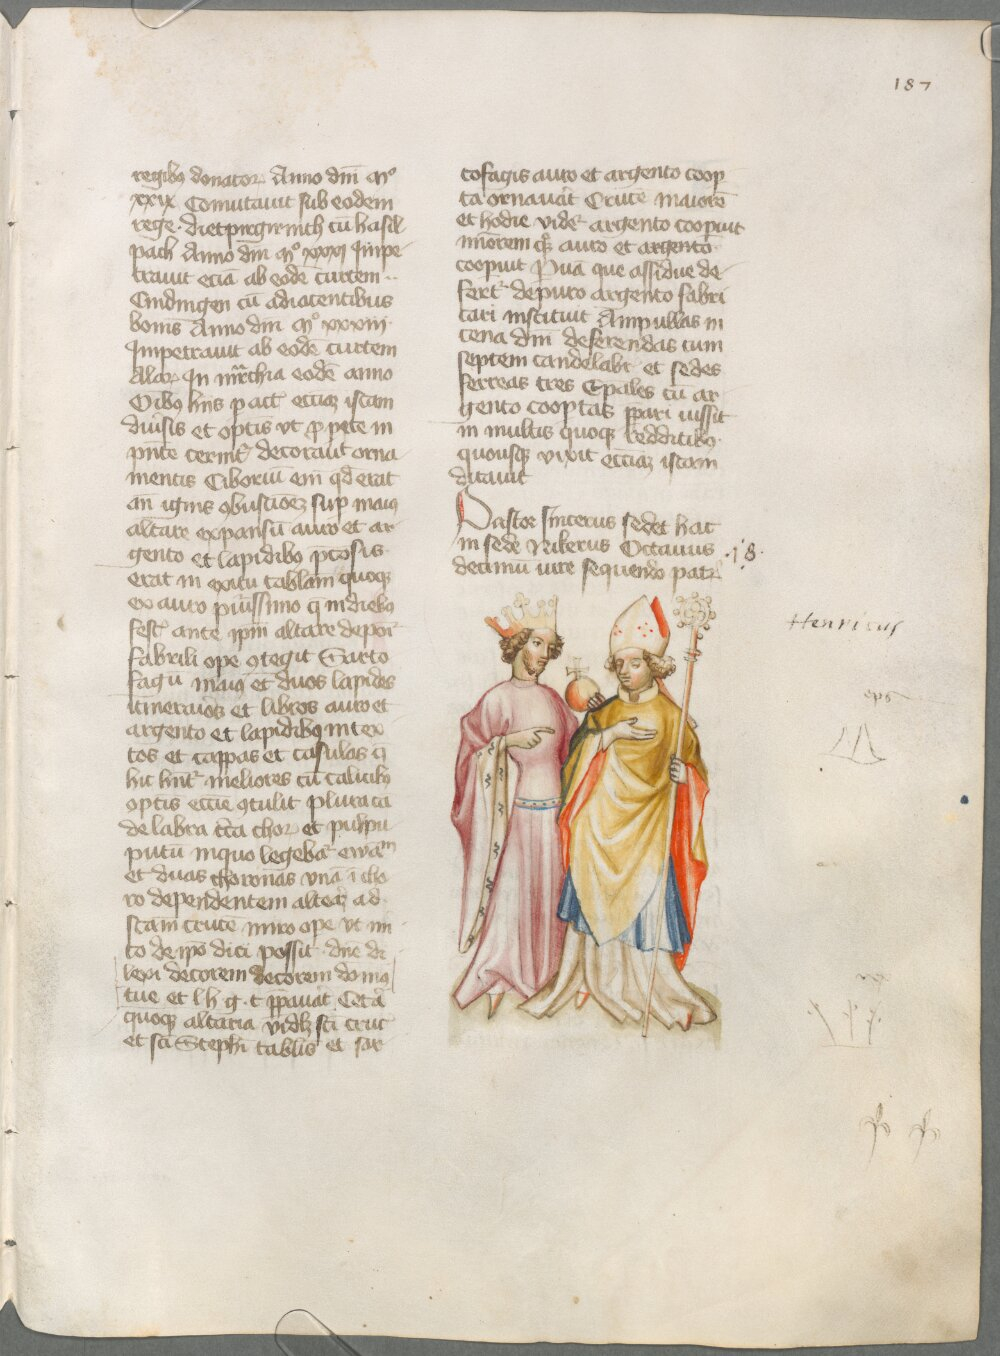 187
regibꝫ donatoꝝ Anno dm̄ mº
xxix Comutauit sub eodem
rege dietpirgirinth cū hasil
pach Anno dm̄ mº xxxi Impe
trauit eciā ab eodē curtem
Cindingen cū adiacentibus
bonis Anno dm̄ mº xxxiii
Impetrauit ab eodē curtem
In eodē anno
istam
diuisis et optis vt in
decorauit orna
mentis Ciboriū em̄ qd̄ erat
an̄ ignis ꝯbustioēꝫ sup maiꝰ
altare expansū auro et ar
gento et lapidibꝫ p̄ciosis
erat in exitu tablam quoqꝫ
ex auro purissimo q̄ in diebꝫ
fest ante ip̄m altare depor
fabrili ope ꝯtegit Sarco
fagū maiꝰ et duos lapides
itinerarios et libros auro et
argento et lapidibꝫ intex
tos et cappas et casulas q̄
hic hn̄t meliores cū calicibꝫ
optis eccīe ꝯtulit plura ca
delabra cc̄a choꝝ et pulpu
putū in quo legebat ewam
et duas choronas vnā ī cho
ro dependentem alteā ad
scām crucē miro ope vt mi
to de ip̄o dici possit dn̄e di
lexi decorem decorem domꝰ
tue et l h g t p̄pauit Cetā
quoqꝫ altaria vidlꝫ sc̄i cruc
et sc̄i Stephi tablis et sar
cofagis auro et argento coop
ta ornauit Crucē maiorē
et hodie videt argento coopuit
mīorem qꝫ auro et argento
coopuit Ꝓuā que assidue de
fert de puro argento fabri
cari instituit Ampullas in
cena dm̄ deferendas cum
septem candelabr et sedes
ferreas tres Epales cū ar
gento cooptas p̄pari iussit
in multis quoqꝫ redditibꝫ
quousqꝫ vixit eccīaꝫ istam
ditauit
Pastor sincerus sedet hac
in sede Nikerus Octauus
decimū iure sequendo patꝝ
·18·
Henricus
eps